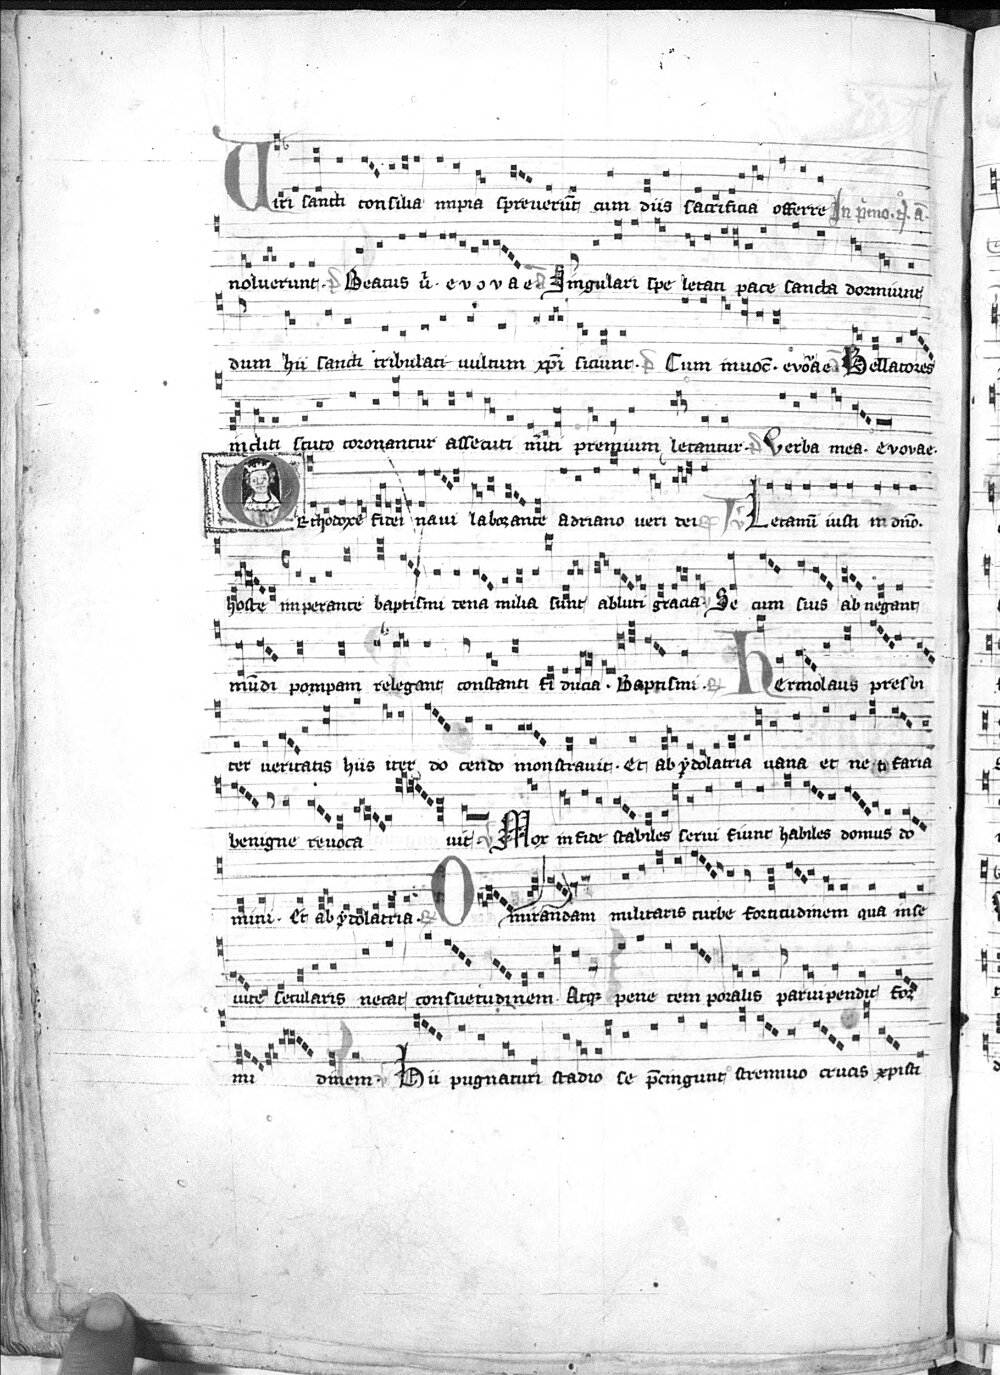 Viri sancti consilia impia spreverūt cum diis sacrificia offerre In p̄mo. ꝯ̊. ā.
noluerunt. p̄s Beatus ū. evovae. ā Singulari spe letati pace sancta dormiunt
dum hii sancti tribulati vultum xp̄i sitiunt. p̄s Cum invoc̄. evovae ā Bellatores
incliti scuto coronantur assecuti m̄iti premium letantur. p̄s Verba mea. evovae.
Orthodoxe fidei navi laborante adriano veri dei V̄ Letamī iusti in dn̄o.
hoste imperante baptismi dena milia sunt abluti gracia. Se cum suis abnegant
mūdi pompam relegant constanti fiducia. Baptismi. Hermolaus presbi
ter veritatis hiis iter docendo monstravit. Et ab ydolatria vana et nefaria
benigne revoca vit. V̄ Mox in fide stabiles servi fiunt habiles domus do
mini. Et ab ydolatria. O mirandam militaris turbe fortitudinem qua in se
vite secularis necat consuetudinem. Atqꝫ pene temporalis parvipendit for
mi dinem. Hii pugnaturi stadio se p̄cingunt strennuo crucis xpisti